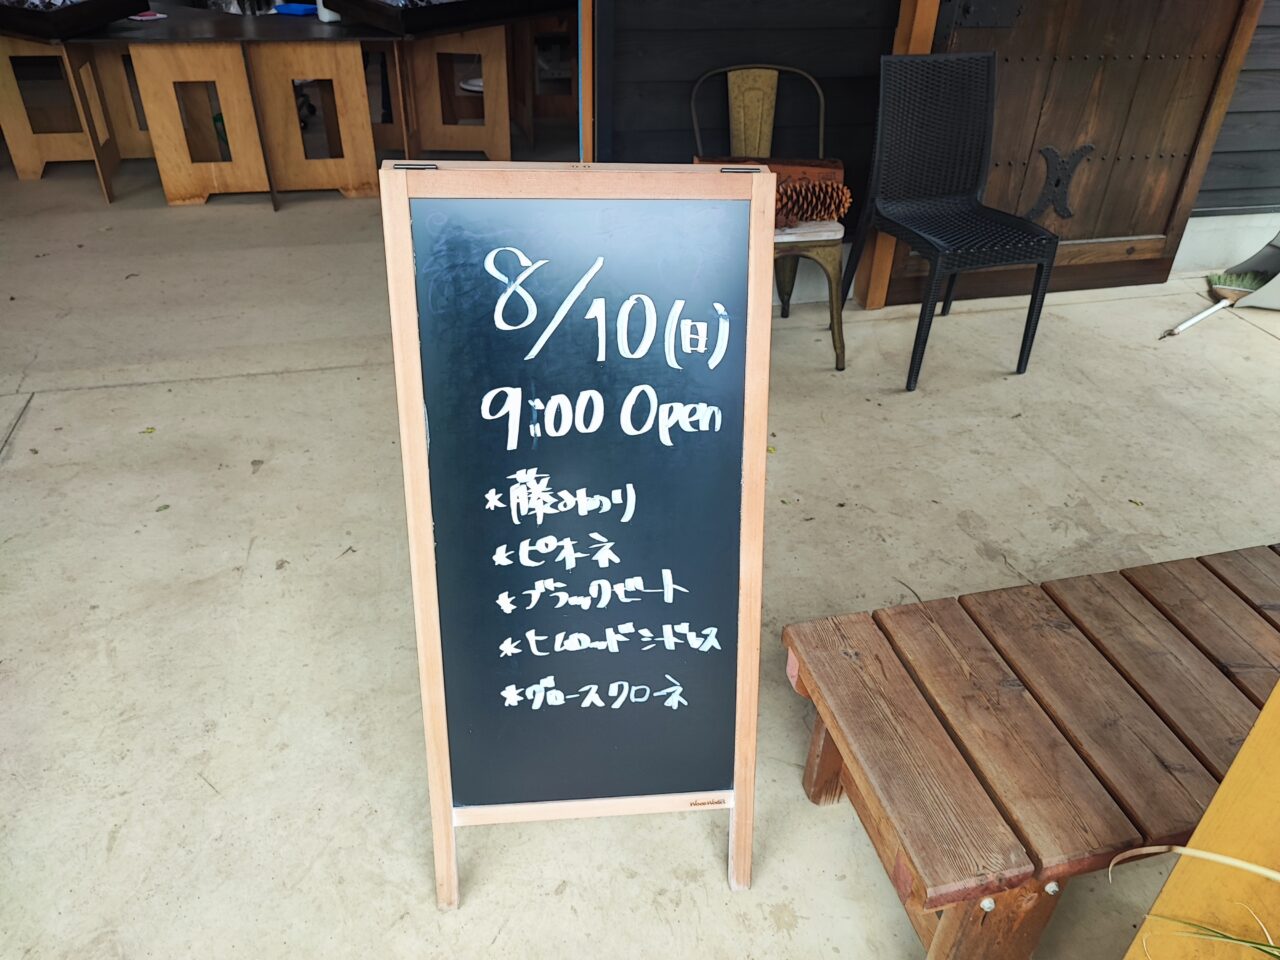 8/10(日)
9:00 Open
*藤みのり
*ピオーネ
*ブラックビート
*ヒムロッドシードレス
*グロースクローネ